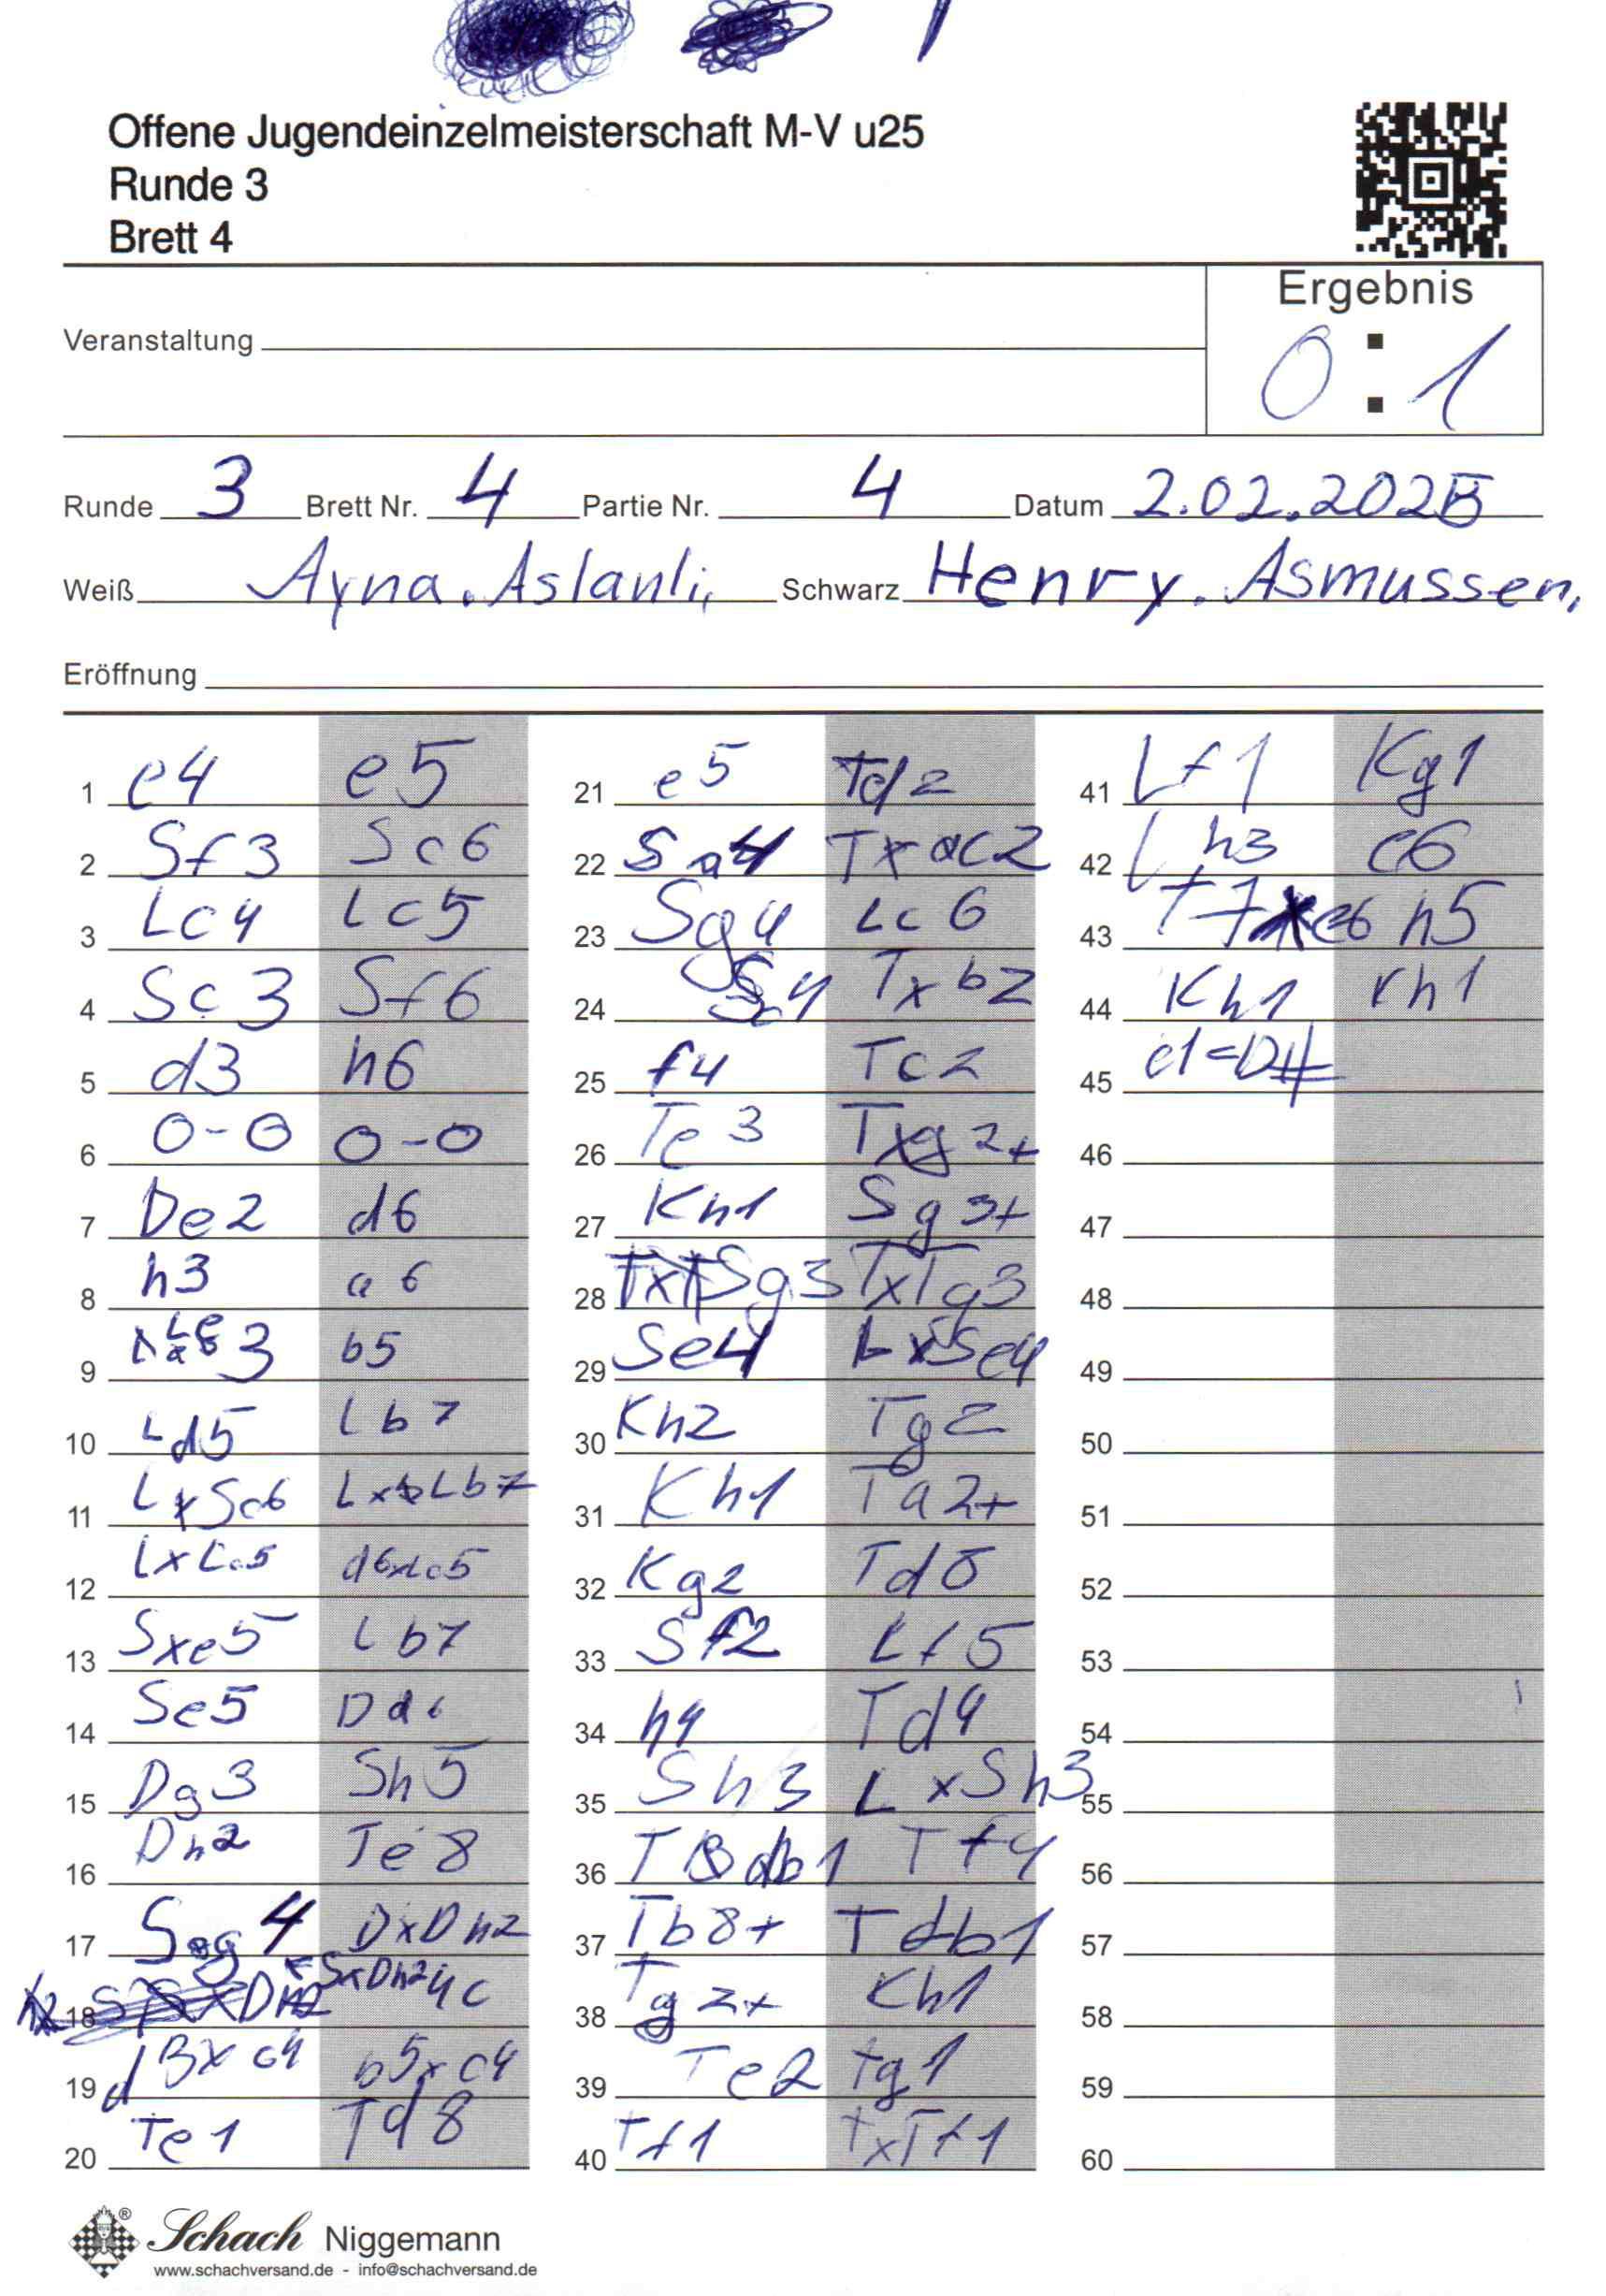 Offene Jugendeinzelmeisterschaft M-V u25
Runde 3
Brett 4
Ergebnis
0 : 1
Veranstaltung
Runde 3 Brett Nr. 4 Partie Nr. 4 Datum 2.02.2025
Weiß Ayna. Aslanli, Schwarz Henry. Asmussen,
Eröffnung
1 e4 e5
2 Sf3 Sc6
3 Lc4 Lc5
4 Sc3 Sf6
5 d3 h6
6 0-0 0-0
7 De2 d6
8 h3 a6
9 Le3 b5
10 Ld5 Lb7
11 LxSc6 LxLb7
12 LxLc5 d6xLc5
13 Sxe5 Lb7
14 Se5 Dd6
15 Dg3 Sh5
16 Dh2 Te8
17 Sg4 DxDh2
18 SxDh2 4c
19 dBxc4 b5xc4
20 Te1 Td8
21 e5 Td2
22 Sa4 Txc2
23 Sg4 Lc6
24 Sc4 Txb2
25 f4 Tc2
26 Te3 Txg2+
27 Kh1 Sg3+
28 TxSg3 TxTg3
29 Se4 LxSe4
30 Kh2 Tg2
31 Kh1 Ta2+
32 Kg2 Td8
33 Sf2 Lf5
34 h4 Td4
35 Sh3 LxSh3
36 Tb1 Tf4
37 Tb8+ Tdb1
38 Tg2+ Kh1
39 Te2 tg1
40 Tf1 TxTf1
41 Lf1 Kg1
42 Lh3 e6
43 f7xe6 h5
44 Kh1 Kh1
45 e1=D#
46
47
48
49
50
51
52
53
54
55
56
57
58
59
60
Schach Niggemann
www.schachversand.de - info@schachversand.de